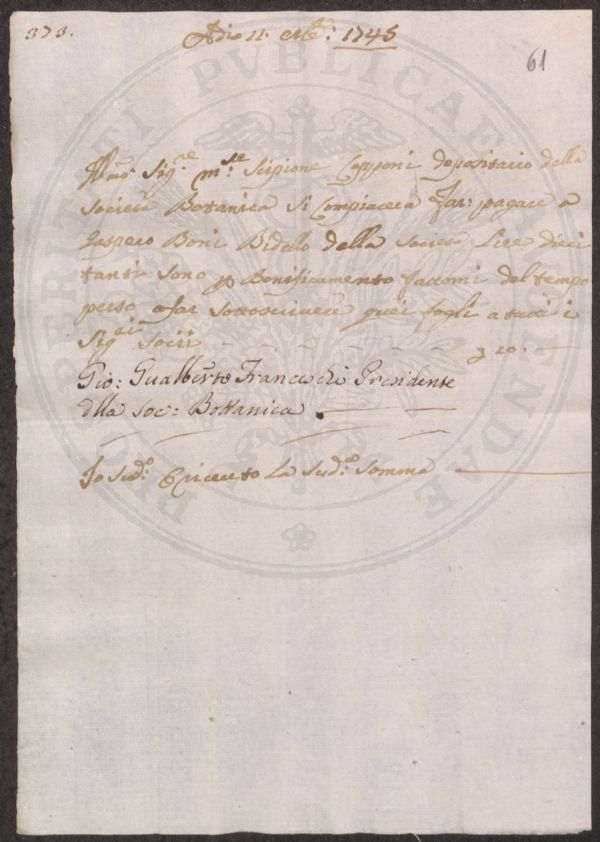 373.
Adio 11. 1745
61
Sig.re M.se Scipione Capponi depositario della
Società Bottanica Si Compiacerà Far: pagare a
Gaspero Boni Bidello della Società Lire dieci
tanti sono p Bonificamento del tempo
perso a far Sottoscrivere quei fogli a tutti i
Sig.ri Socii - - - - 10. -
Gio: Gualberto Franceschi Presidente
della Soc: Bottanica.
Io Sud.o la Sud.a Somma
PROSPERITATI PVBLICAE AVGENDAE